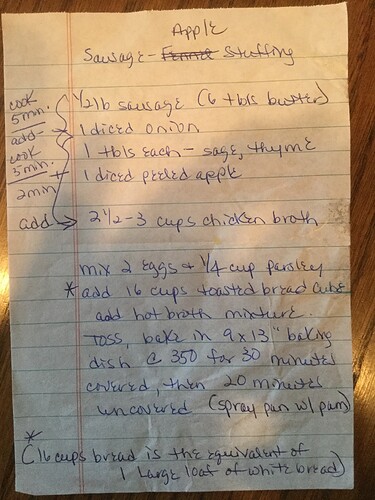 Apple
Sausage - Fennel Stuffing
cook 5 min.
1/2 lb sausage (6 tbls butter)
add
1 diced onion
cook 5 min.
1 tbls each - sage, thyme
+ 1 diced peeled apple
2 min
add → 2 1/2 - 3 cups chicken broth
mix 2 eggs + 1/4 cup parsley
* add 16 cups toasted bread cube
add hot broth mixture.
Toss, bake in 9 x 13" baking
dish @ 350 for 30 minutes
covered, then 20 minutes
uncovered (spray pan w/ pam)
*
(16 cups bread is the equivalent of
1 large loaf of white bread)